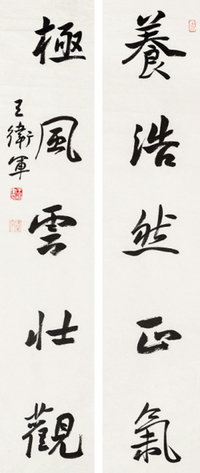 養浩然正氣
極風雲壯觀
王衛軍